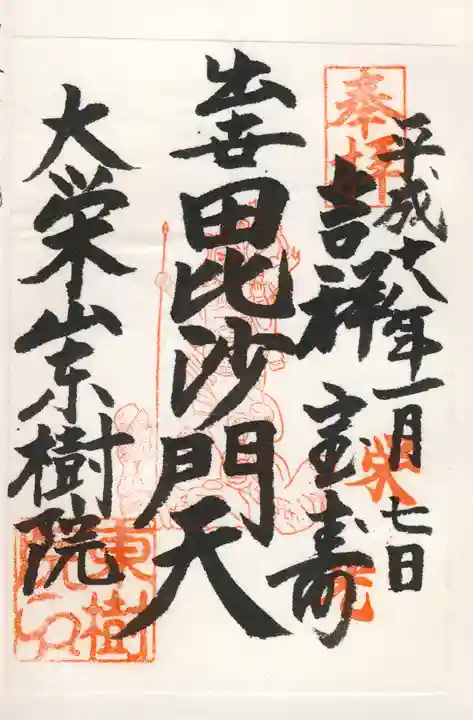 奉拝
平成十八年一月七日
吉祥
宝寿
出世毘沙門天
大栄山東樹院
東樹
院